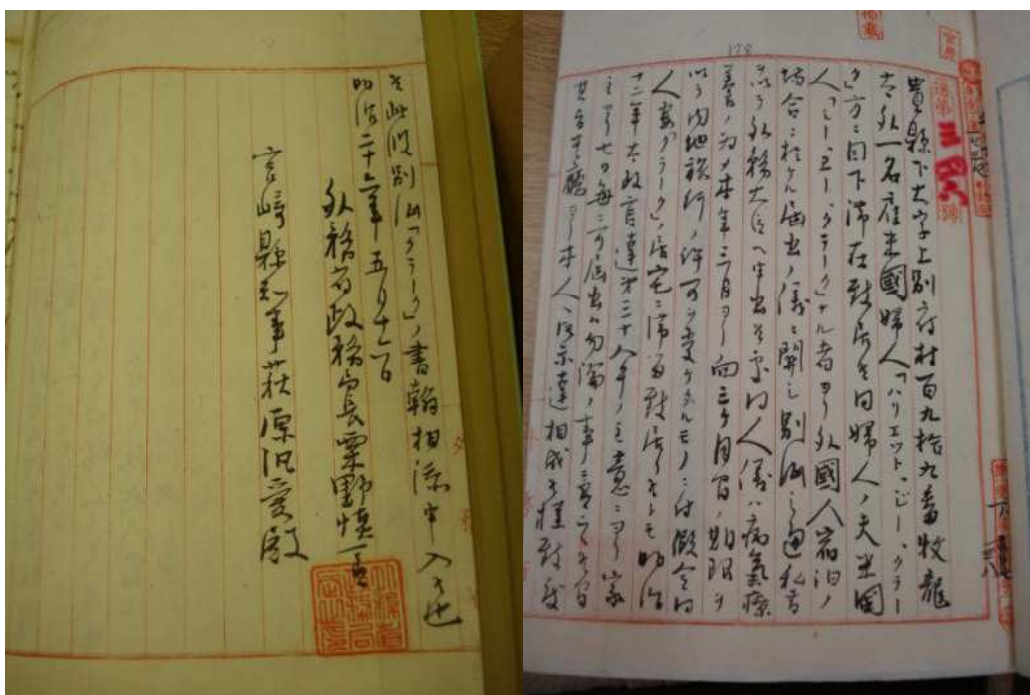 三四六
貴縣下大字上別府村百九拾九番牧龍
太外一名雇米國婦人「ハリエット、ビー、クラー
ク」方ニ目下滞在致居候同婦人ノ夫米國
人「シー、エー、クラーク」ナル者ヨリ外國人宿泊ノ
場合ニ於ケル届出ノ儀ニ関シ別紙之通私書
ヲ以テ外務大臣ヘ申出候處同人儀ハ病氣療
養ノ為メ本年三月ヨリ向三ヶ月間ノ期限ヲ
以テ内地旅行ノ許可ヲ受ケタルモノニ付假令同
人妻「クラーク」居宅ニ滞留致居候トモ明治
十二年太政官達第二十八号ノ主意ニヨリ家
主ヨリ毎ニ可届出ハ勿論ノ事ニ有之候間
其旨貴廳ヨリ本人ヘ御示達相成候様致度
此段別紙「クラーク」ノ書翰相添申入候也
明治二十六年五月十一日
外務省政務局長栗野慎一郎
宮崎縣知事萩原汎愛殿